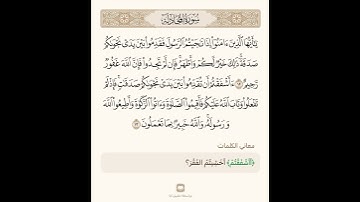 سورة المجادلة
يَٰٓأَيُّهَا ٱلَّذِينَ ءَامَنُوٓا۟ إِذَا نَٰجَيْتُمُ ٱلرَّسُولَ فَقَدِّمُوا۟ بَيْنَ يَدَىْ نَجْوَىٰكُمْ
صَدَقَةً ۚ ذَٰلِكَ خَيْرٌ لَّكُمْ وَأَطْهَرُ ۚ فَإِن لَّمْ تَجِدُوا۟ فَإِنَّ ٱللَّهَ غَفُورٌ
رَّحِيمٌ ١٢ ءَأَشْفَقْتُمْ أَن تُقَدِّمُوا۟ بَيْنَ يَدَىْ نَجْوَىٰكُمْ صَدَقَٰتٍ ۚ فَإِذْ لَمْ
تَفْعَلُوا۟ وَتَابَ ٱللَّهُ عَلَيْكُمْ فَأَقِيمُوا۟ ٱلصَّلَوٰةَ وَءَاتُوا۟ ٱلزَّكَوٰةَ وَأَطِيعُوا۟ ٱللَّهَ
وَرَسُولَهُۥ ۚ وَٱللَّهُ خَبِيرٌۢ بِمَا تَعْمَلُونَ ١٣
معاني الكلمات
﴿ءَأَشْفَقْتُمْ﴾ أَخَشِيتُمُ الفَقْرَ؟